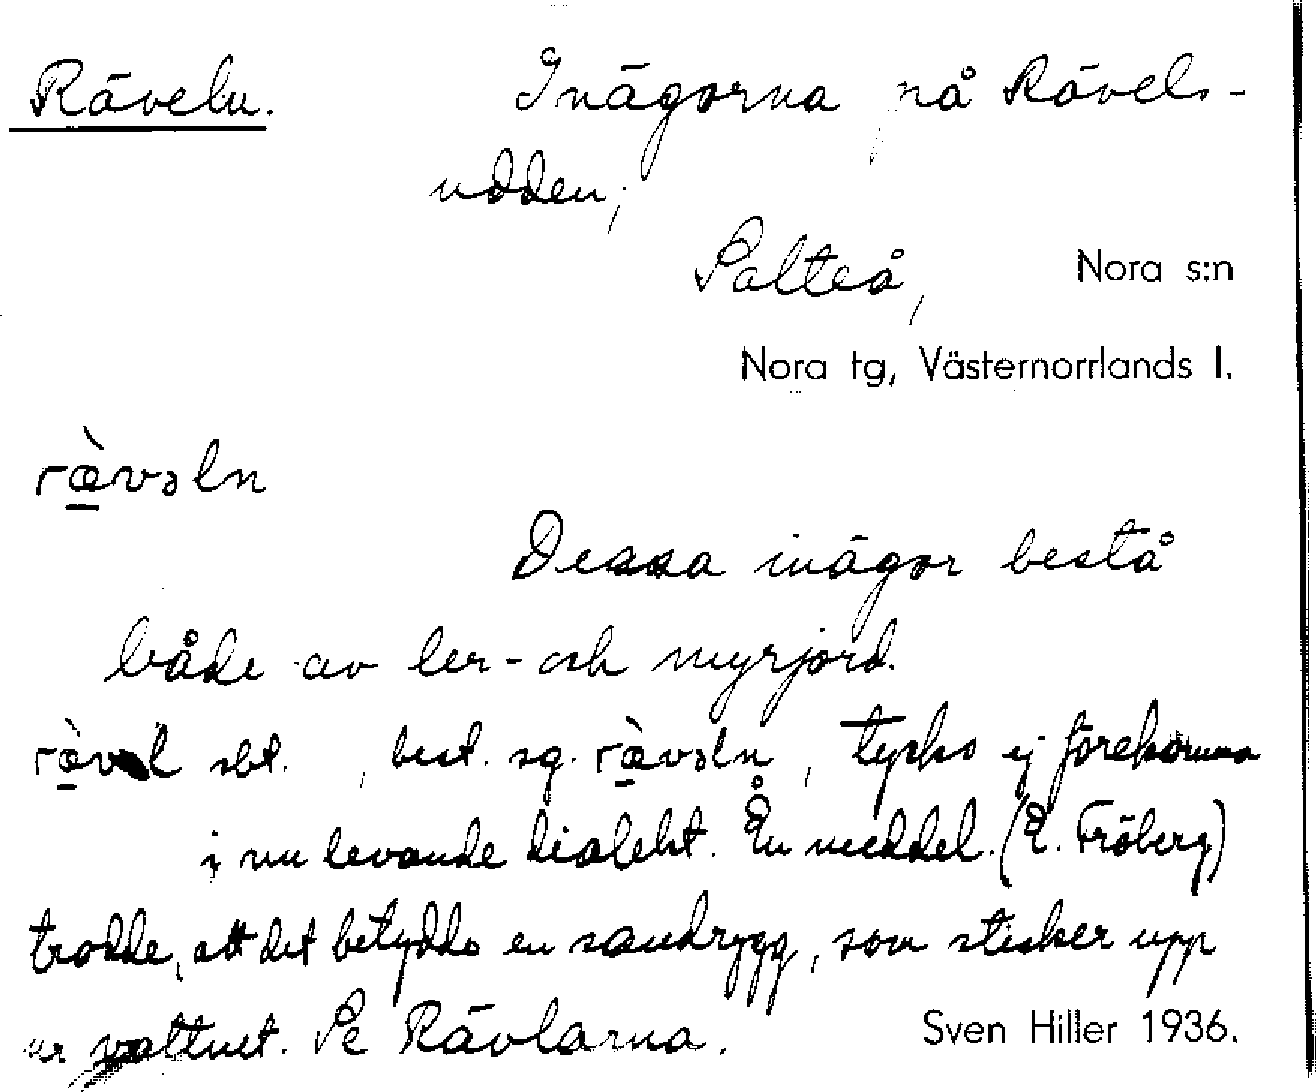 Räveln. Inägorna på Rävels-
udden;
Salteå, Nora s:n
Nora tg, Västernorrlands l.
ræ̀vəln
Dessa inägor bestå
både av ler- och myrjord.
ræ̀vəl sbt. , best. sg. ræ̀vəln, tycks ej förekomma
i nu levande dialekt. En meddel. (E. Fröberg)
trodde, att det betydde en sandrygg, som sticker upp
ur vattnet. Se Rävlarna. Sven Hiller 1936.